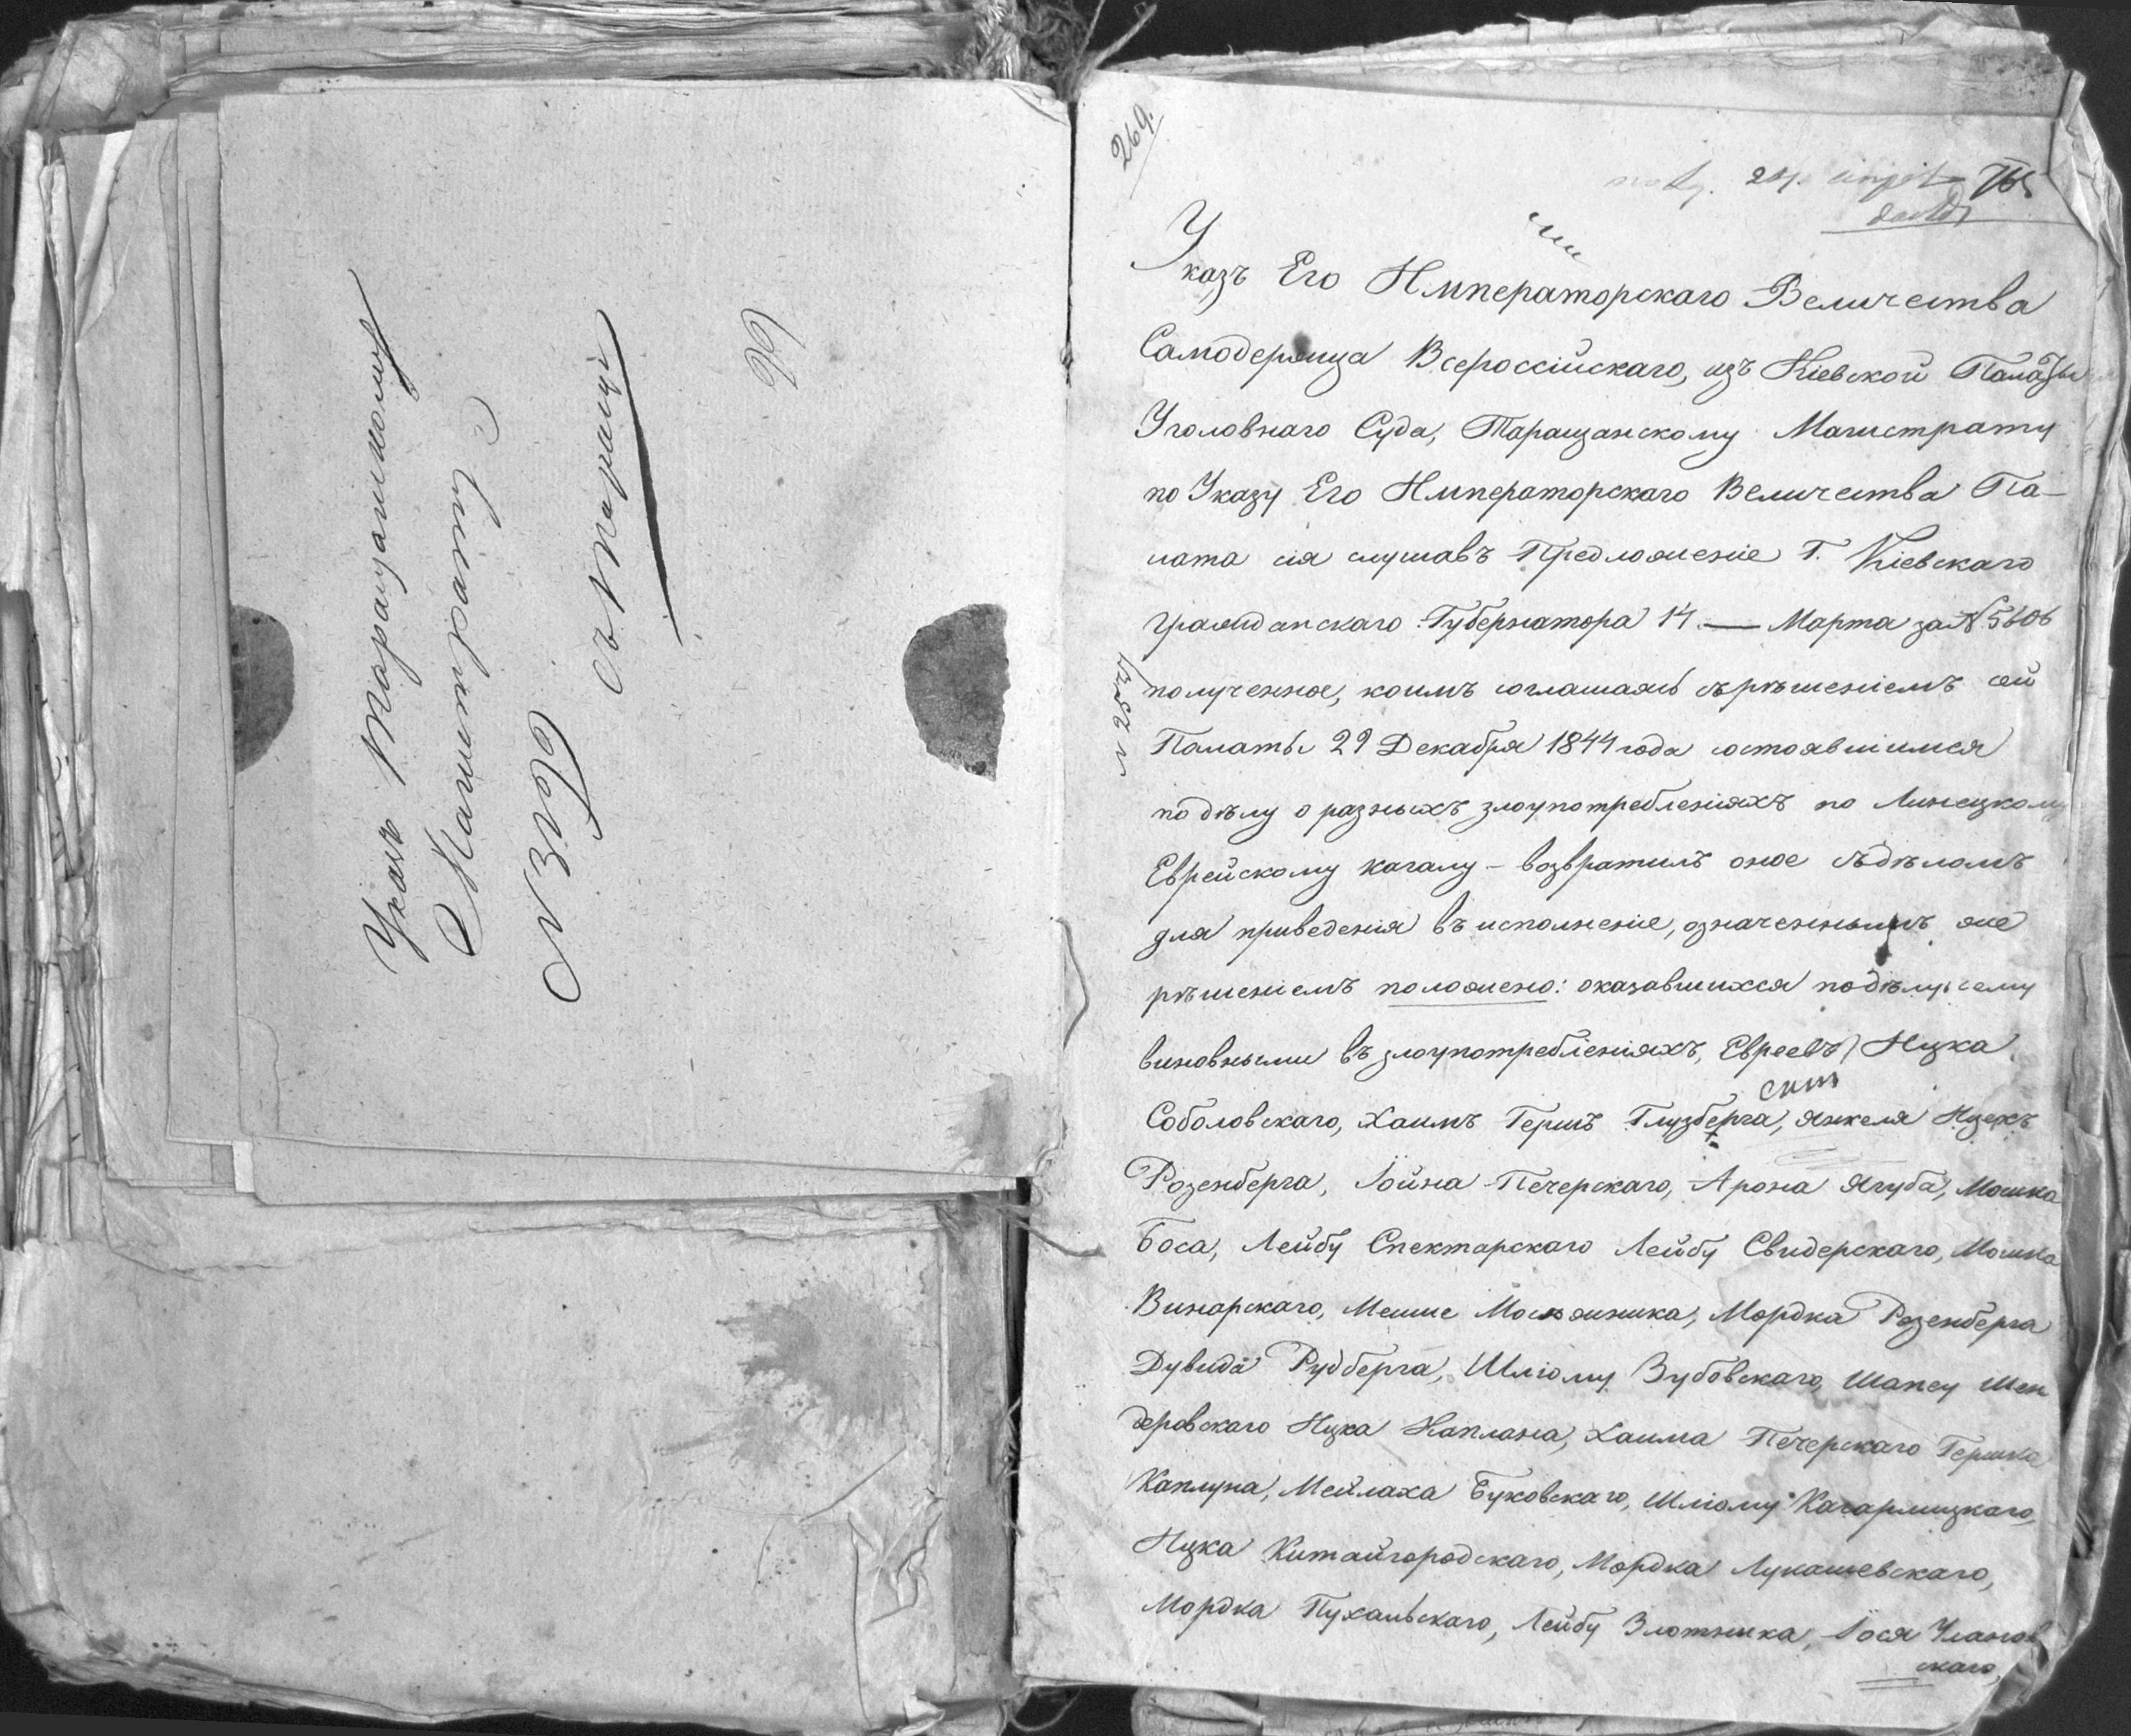 Указъ Таращанскому
Магистрату
N 3496
въ Таращѣ
269.
Указъ Его Императорскаго Величества
Самодержца Всероссійскаго, изъ Кіевской Палаты
Уголовнаго Суда, Таращанскому Магистрату
по Указу Его Императорскаго Величества Па-
лата сія слушавъ Предложеніе Г. Кіевскаго
Гражданскаго Губернатора 14 — Марта за N 5606
полученное, коимъ соглашаясь съ рѣшеніемъ сей
Палаты 29 Декабря 1844 года состоявшимся
по дѣлу о разныхъ злоупотребленіяхъ по Линецкому
Еврейскому кагалу – возвратилъ оное съ дѣломъ
для приведенія въ исполненіе, означеннымъ же
рѣшеніемъ положено: оказавшихся по дѣлу сему
виновными въ злоупотребленіяхъ, Евреевъ Ицка
Соболовскаго, Хаимъ Гершъ Глузберга, Янкеля Ицехъ
Розенберга, Іойна Печерскаго, Арона Ягуба, Мошка
Боса, Лейбу Спекторскаго Лейбу Свидерскаго, Мошка
Винарскаго, Мордка Розенберга
Дувида Рудберга, Шліому Зубовскаго, Шапсу Шен
деровскаго Ицка Каплана, Хаима Печерскаго Гершка
Каплуна, Мейлаха Буковскаго, Шліому Кагарлицкаго,
Ицка Китайгородскаго, Мордка Лукашевскаго,
Мордка Пухальскаго, Лейбу Злотника, Іося Уланов
скаго,